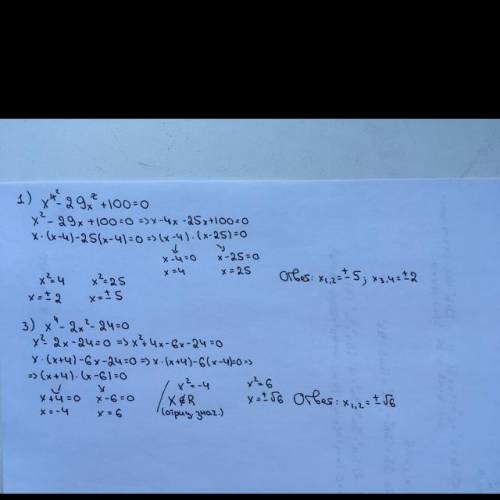 1) x⁴² - 29x² + 100 = 0
x² - 29x + 100 = 0 => x - 4x - 25x + 100 = 0
x · (x-4) - 25(x-4) = 0 => (x-4) · (x-25) = 0
x-4=0 x-25=0
x=4 x=25
x²=4 x²=25
x=±2 x=±5
Ответ: x₁,₂=±5; x₃,₄=±2
3) x⁴ - 2x² - 24 = 0
x² - 2x - 24 = 0 => x² + 4x - 6x - 24 = 0
x · (x+4) - 6x - 24 = 0 => x · (x+4) - 6(x-4) = 0 =>
=> (x+4) · (x-6) = 0
x+4=0 x-6=0
x=-4 x=6
x²=-4 x²=6
x∉R x=±√6
(отриц. знач.)
Ответ: x₁,₂=±√6